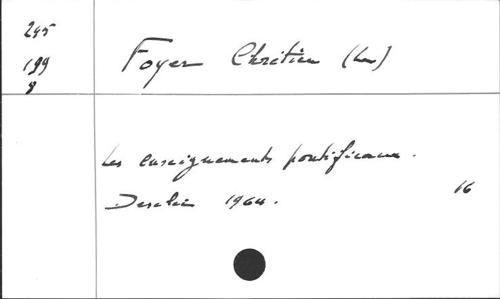 245
199
8
Foyer Chrétien (Le)
Les enseignements pontificaux.
Desclée 1964.
16